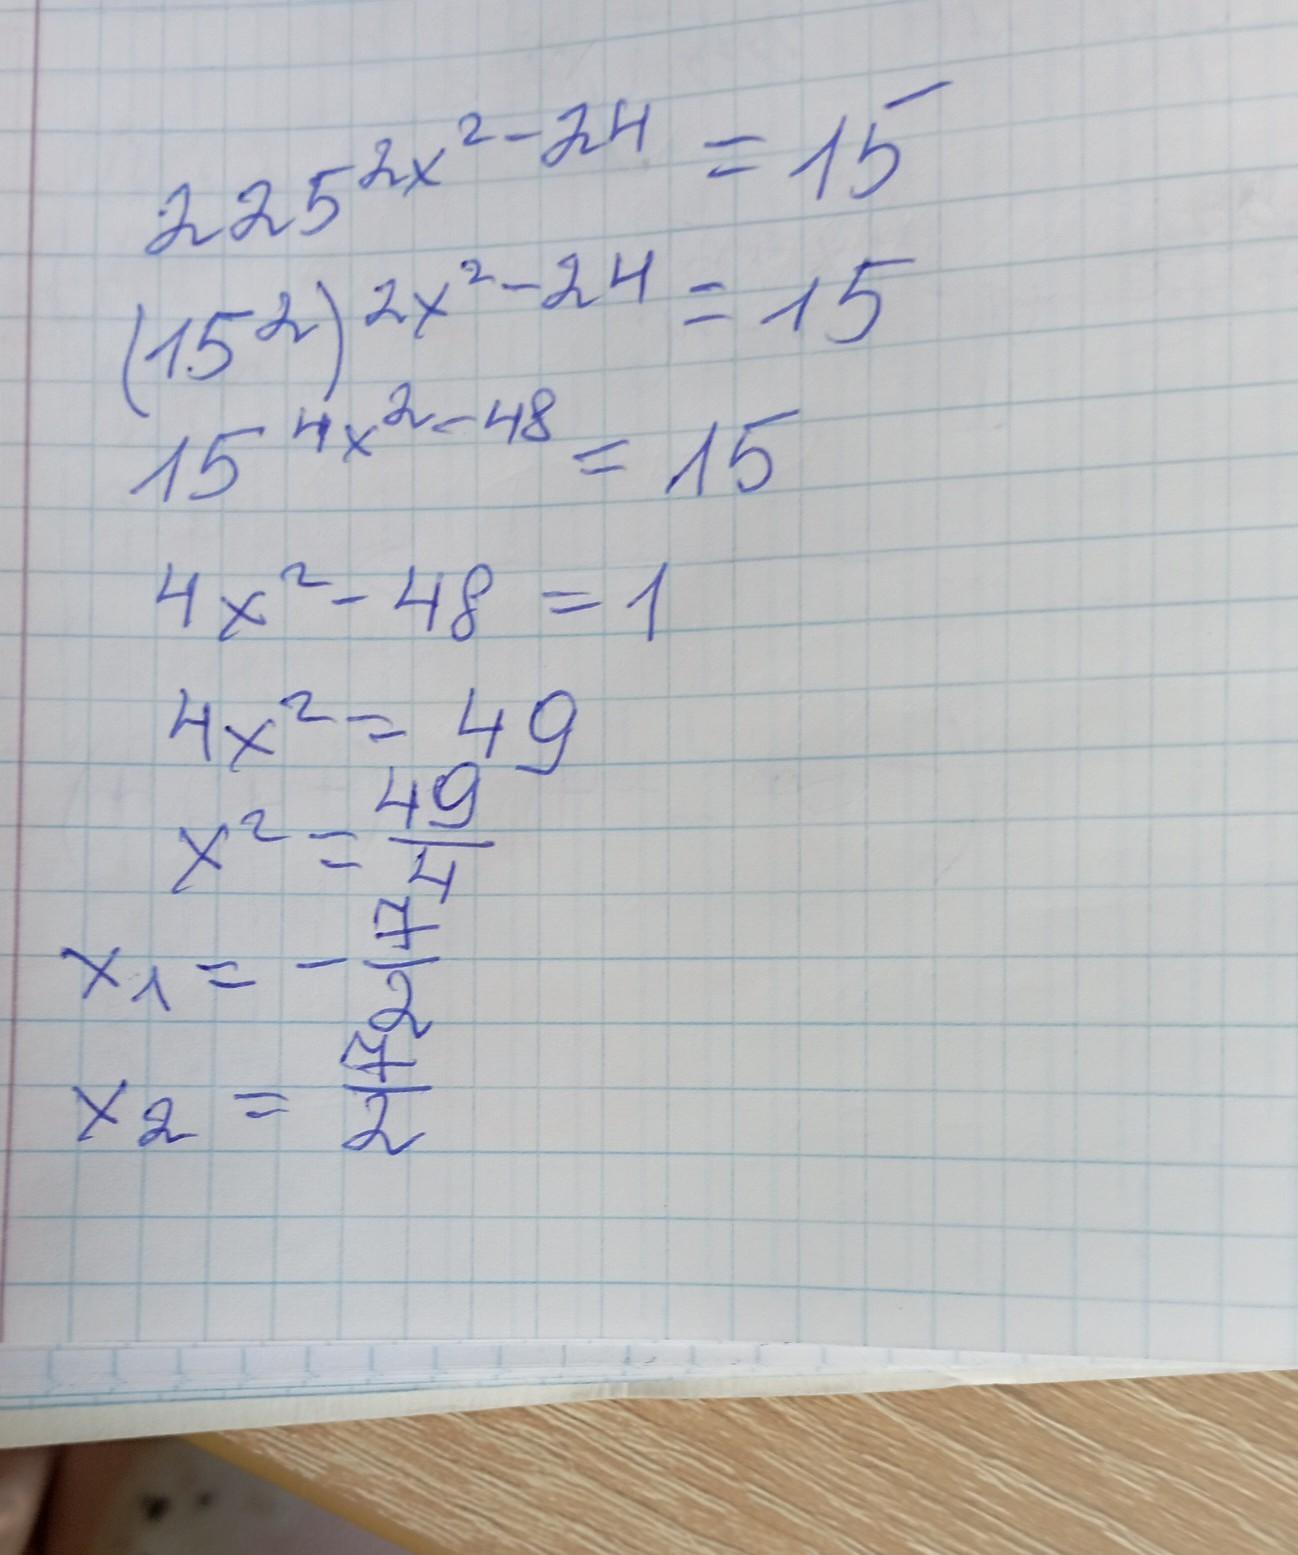 225^{2x^2-24} = 15
(15^2)^{2x^2-24} = 15
15^{4x^2-48} = 15
4x^2 - 48 = 1
4x^2 = 49
x^2 = \frac{49}{4}
x_1 = -\frac{7}{2}
x_2 = \frac{7}{2}